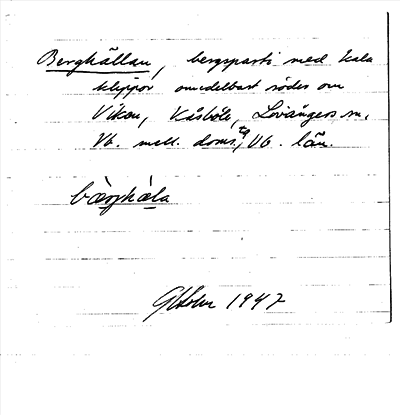 Berghällan, bergsparti med kala
klippor omedelbart söder om
Viken, Kåsböle, Lövångers sn,
Vb. mell. doms., Vb. län.
bærghæla
1947